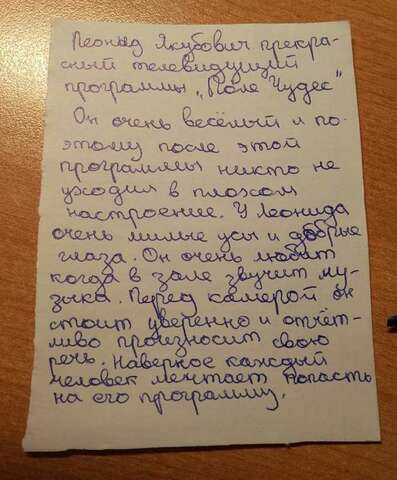 Леонид Якубович прекра-
сный телевидущий
программы „Поле Чудес"
Он очень весёлый и по-
этому после этой
программы никто не
уходил в плохом
настроение. У Леонида
очень милые усы и добрые
глаза. Он очень любит
когда в зале звучит му-
зыка. Перед камерой он
стоит уверенно и отчёт-
ливо произносит свою
речь. Наверное каждый
человек мечтает попасть
на его программу.